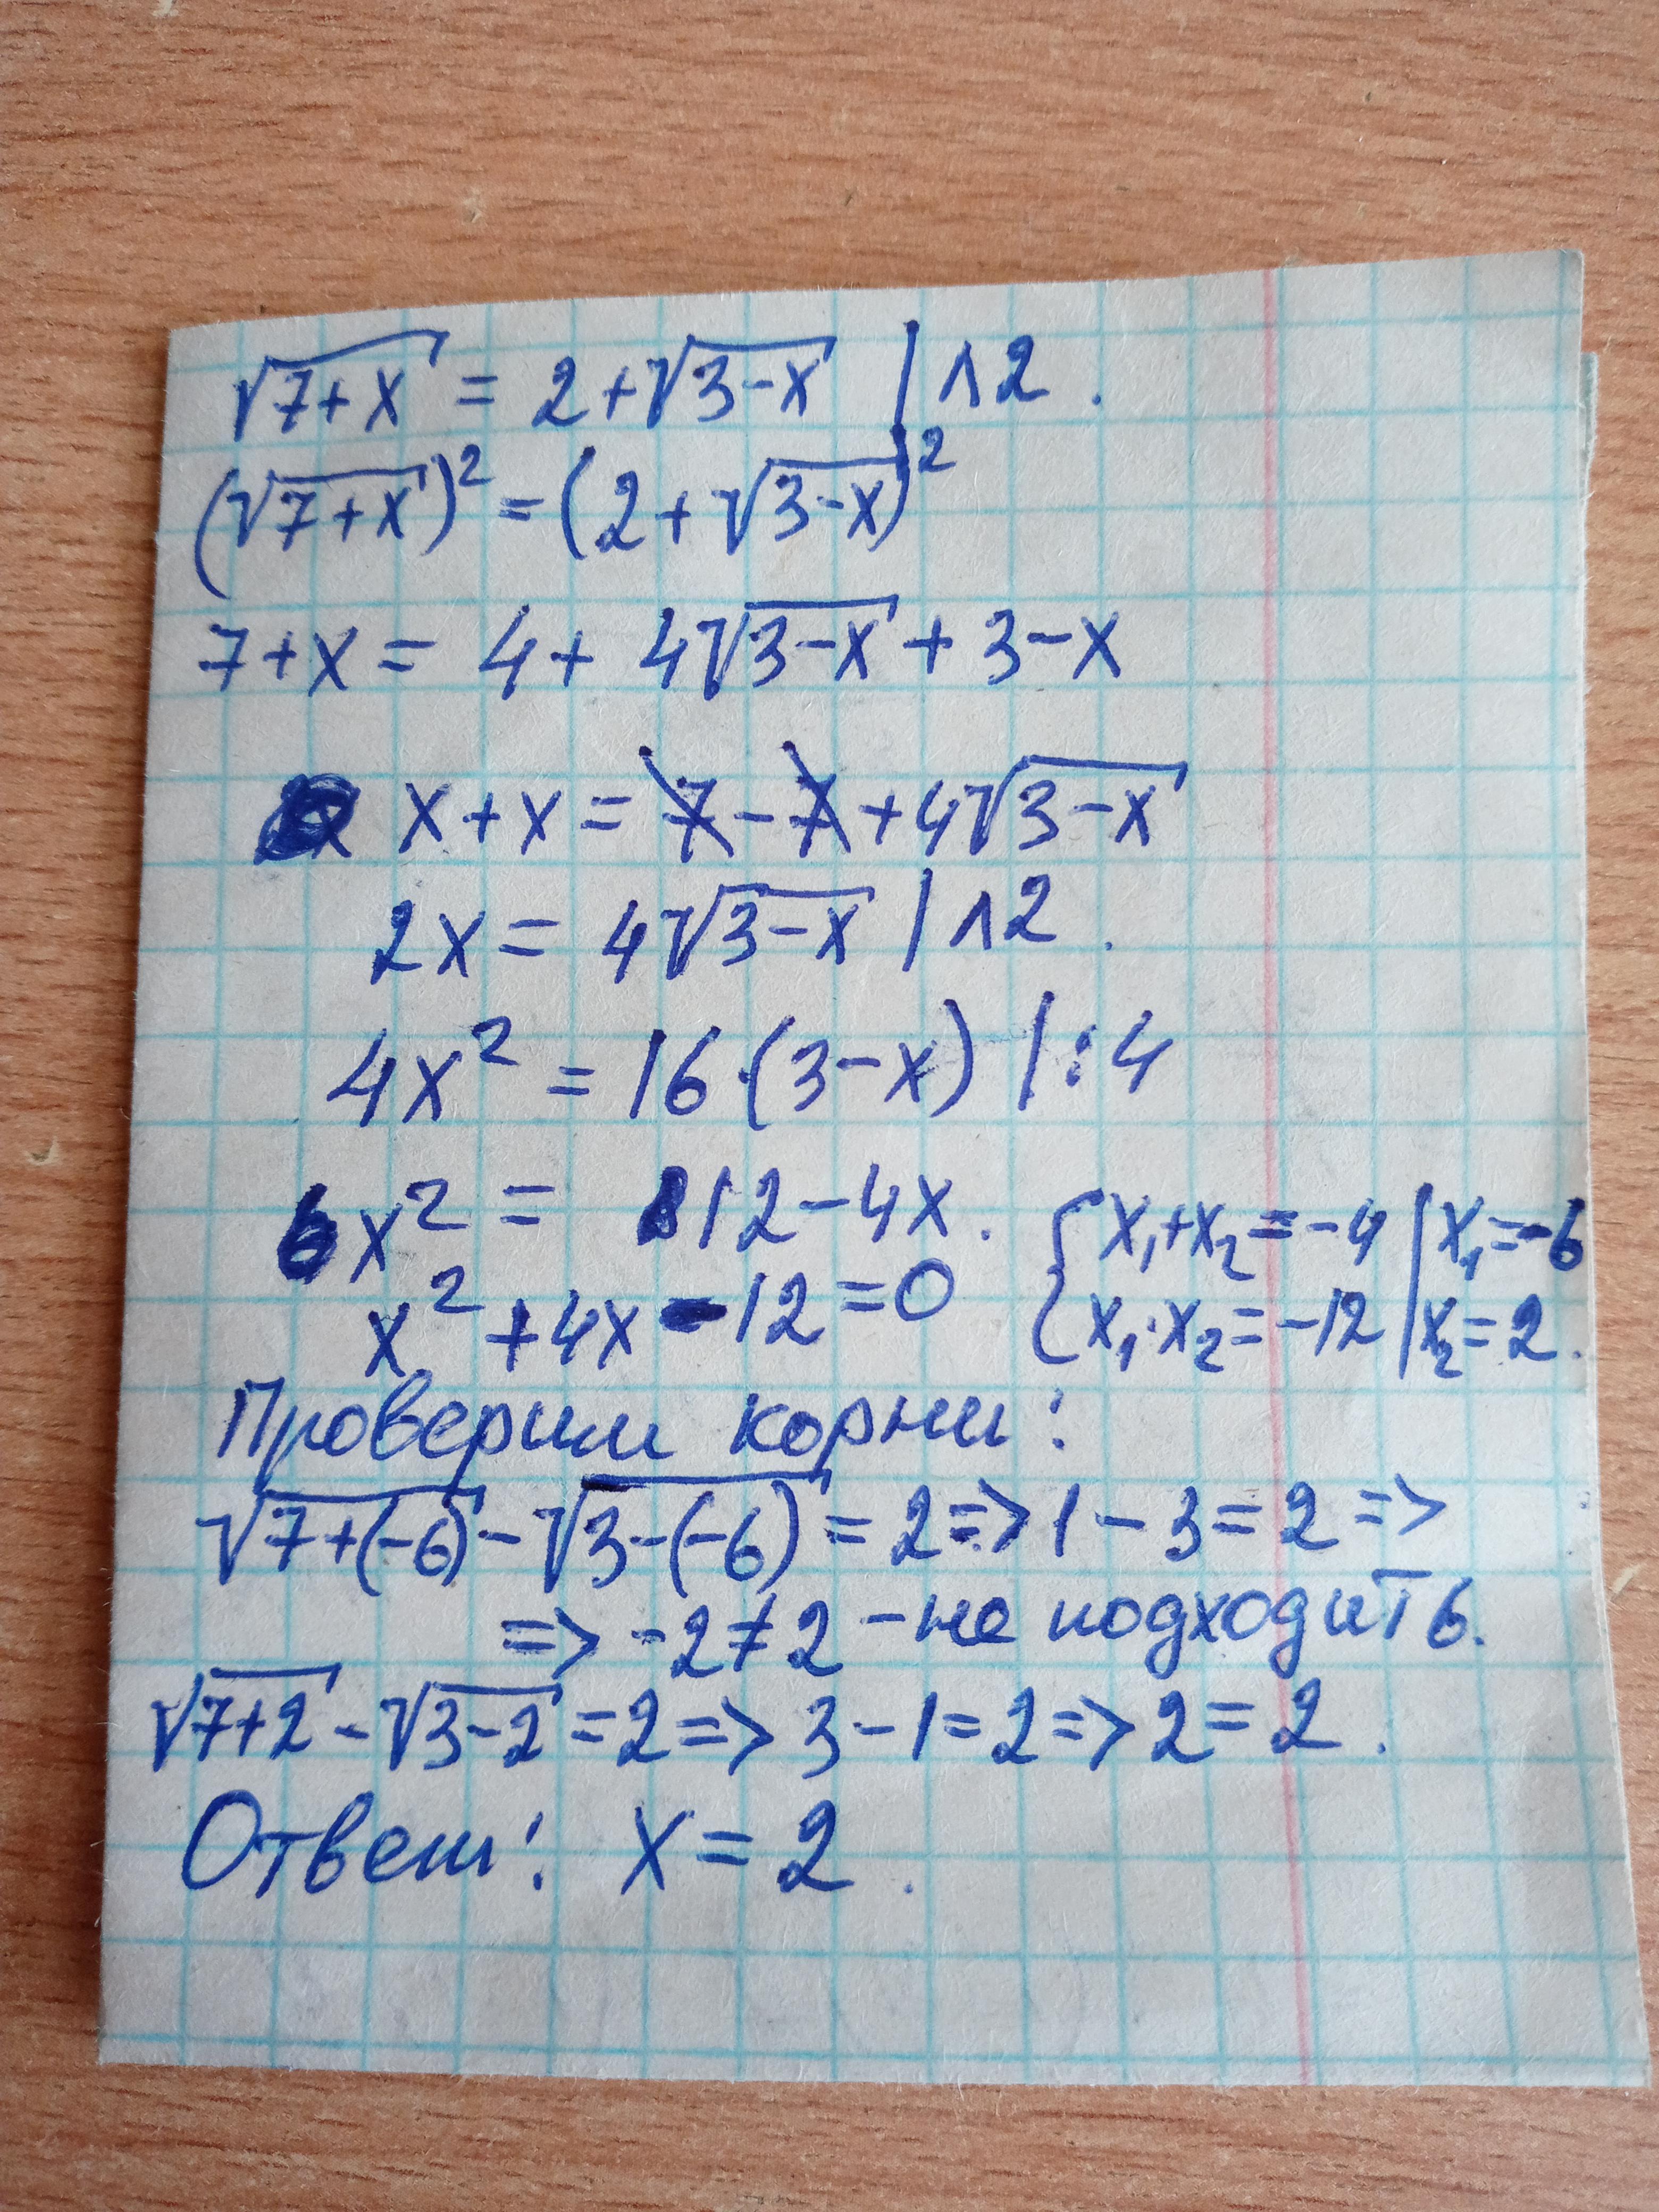 √7+x = 2+√3-x | ^2.
(√7+x)² = (2+√3-x)²
7+x = 4+ 4√3-x + 3-x
x+x = 7-7+4√3-x
2x = 4√3-x | ^2.
4x² = 16·(3-x) | :4
x² = 12-4x.
x²+4x-12=0
{ x₁+x₂=-4 | x₁=-6
x₁·x₂=-12 | x₂=2.
Проверим корни:
√7+(-6) - √3-(-6) = 2 => 1-3=2 =>
=> -2≠2 - не подходить.
√7+2 - √3-2 = 2 => 3-1=2 => 2=2.
Ответ: x=2.